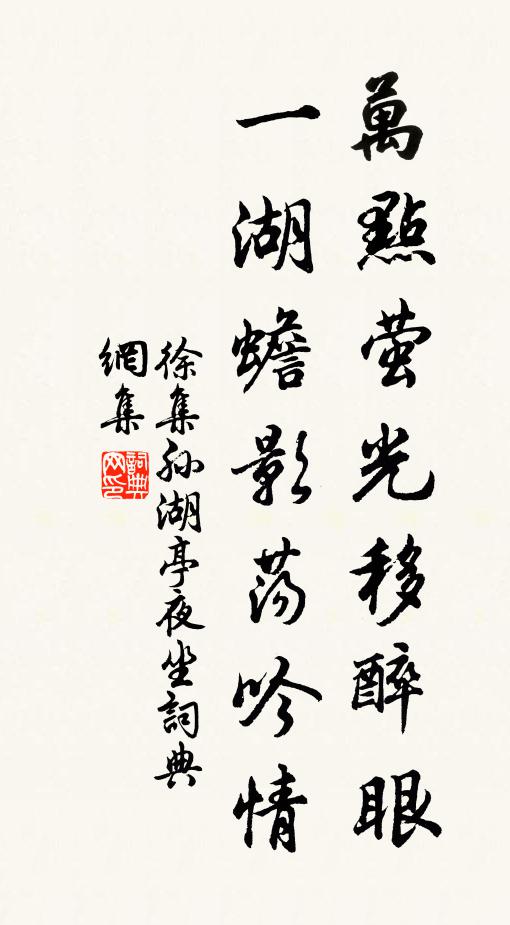 萬點萤光移醉眼
一湖蟾影荡吟情
徐集孙湖亭夜坐詞典
網集
詞典網印